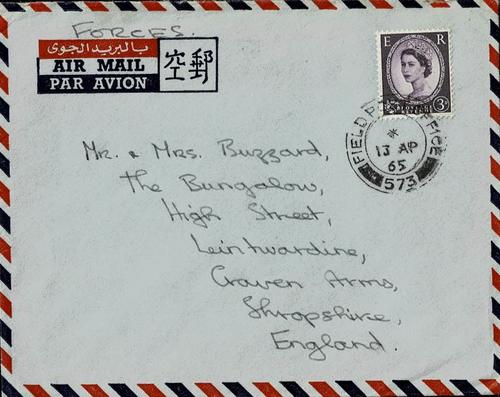 FORCES.
بالبريد الجوي
AIR MAIL
PAR AVION
空郵
E R
3D
FIELD POST OFFICE
*
13 AP
65
573
Mr. & Mrs. Buzzard,
The Bungalow,
High Street,
Leintwardine,
Craven Arms,
Shropshire,
England.